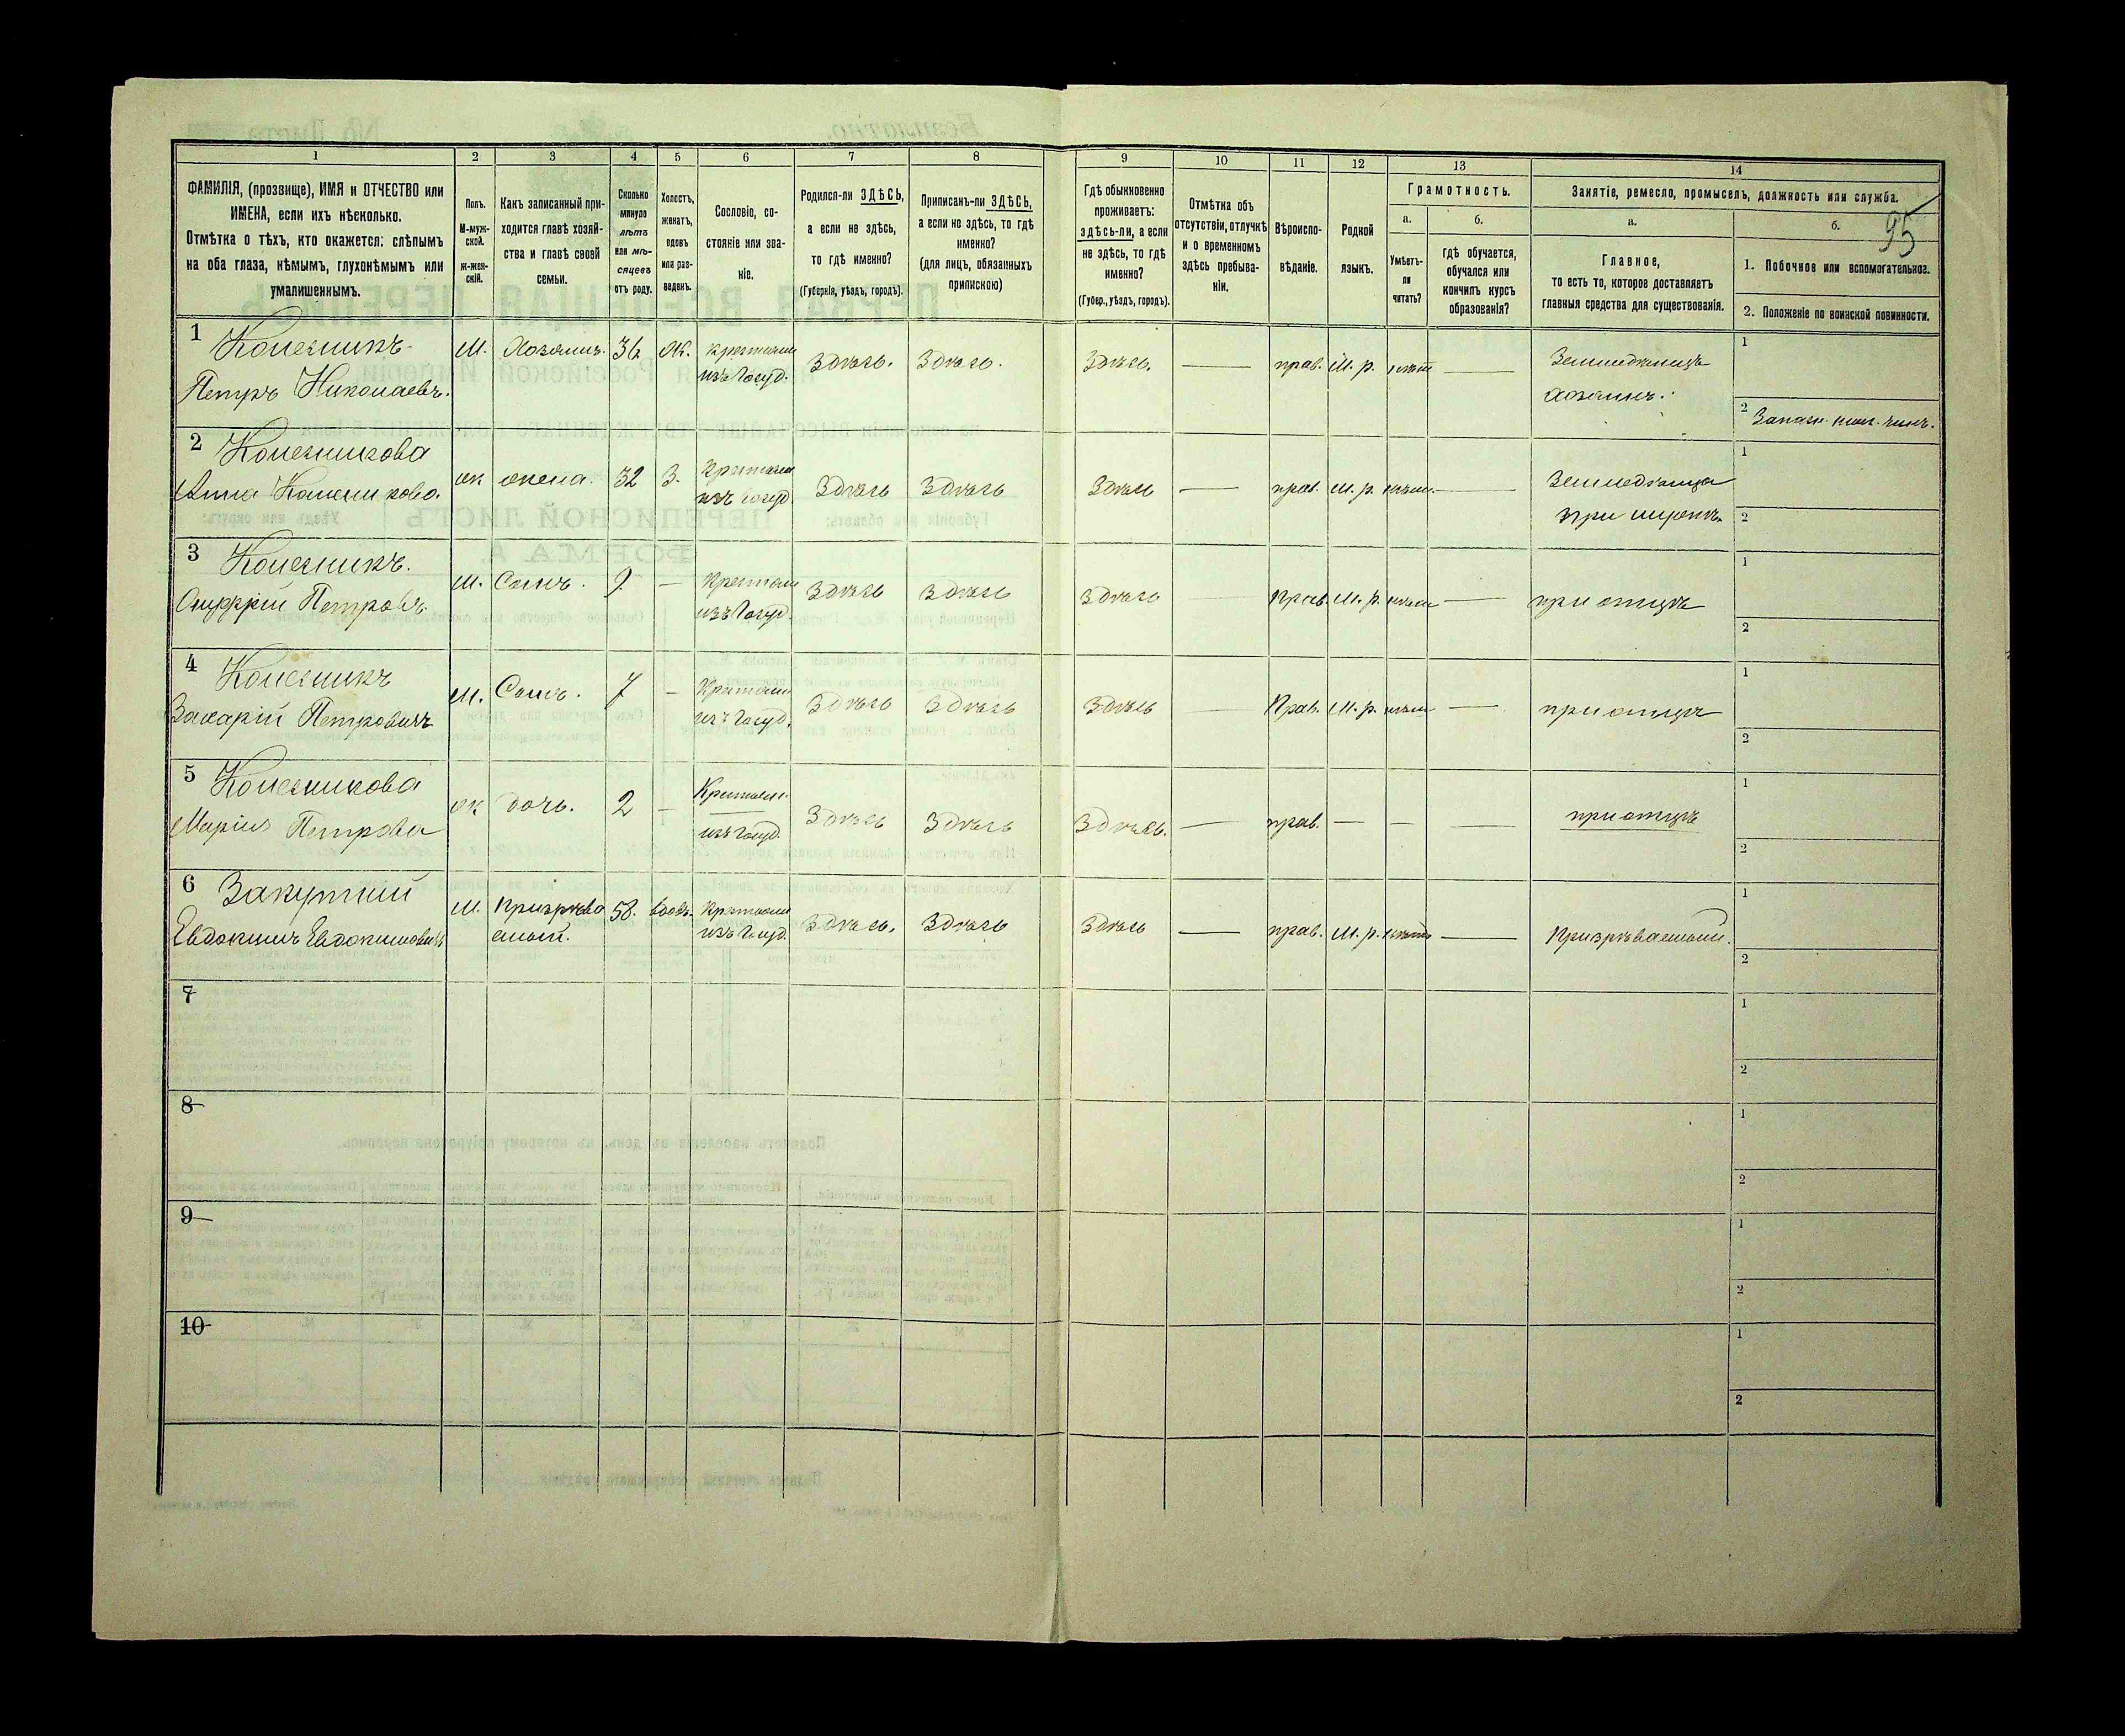 1 2 3 4 5 6 7 8 9 10 11 12 13 14
ФАМИЛІЯ, (прозвище), ИМЯ и ОТЧЕСТВО или
ИМЕНА, если ихъ нѣсколько.
Отмѣтка о тѣхъ, кто окажется: слѣпымъ
на оба глаза, нѣмымъ, глухонѣмымъ или
умалишеннымъ.
Полъ.
М-муж-
ской.
ж-жен-
скій.
Какъ записанный при-
ходится главѣ хозяй-
ства и главѣ своей
семьи.
Сколько
минуло
лѣтъ
или мѣ-
сяцевъ
отъ роду.
Холостъ,
женатъ,
вдовъ
или раз-
веденъ.
Сословіе, со-
стояніе или зва-
ніе.
Родился-ли ЗДѢСЬ,
а если не здѣсь,
то гдѣ именно?
(Губернія, уѣздъ, городъ).
Приписанъ-ли ЗДѢСЬ,
а если не здѣсь, то гдѣ
именно?
(для лицъ, обязанныхъ
припискою)
Гдѣ обыкновенно
проживаетъ:
здѣсь-ли, а если
не здѣсь, то гдѣ
именно?
(Губер., уѣздъ, городъ).
Отмѣтка объ
отсутствіи, отлучкѣ
и о временномъ
здѣсь пребыва-
ніи.
Вѣроиспо-
вѣданіе.
Родной
языкъ.
Грамотность.
а.
Умѣетъ-
ли
читать?
б.
гдѣ обучается,
обучался или
кончилъ курсъ
образованія?
Занятіе, ремесло, промыселъ, должность или служба.
а.
Главное,
то есть то, которое доставляетъ
главныя средства для существованія.
б.
95
1. Побочное или вспомогательное.
2. Положеніе по воинской повинности.
1 Колесникъ
Петръ Николаевъ.
М. Хозяинъ. Ж. крестьян
изъ Госуд.
Здѣсь. Здѣсь. Здѣсь. — прав. М. р. нѣтъ —
Земледѣлецъ
хозяинъ.
1
2 Запасн. ниж. чинъ.
2 Колесникова
Анна
ж жена. 32 З. Крестьян
изъ госуд.
Здѣсь Здѣсь Здѣсь — прав. М. р. нѣтъ —
Земледѣлица
при
1
2
3 Колесникъ.
Петровъ.
М. Сынъ. 9. — Крестьян
изъ Госуд.
Здѣсь Здѣсь Здѣсь — Прав. М. р. нѣтъ — при отцѣ
1
2
4 Колесникъ
Захарій Петровичъ
М. Сынъ. 7 — Крестьян
изъ Госуд.
Здѣсь Здѣсь Здѣсь — Прав. М. р. нѣтъ — при отцѣ
1
2
5 Колесникова
Марія Петрова
ж дочь. 2 — Крестьян.
изъ Госуд.
Здѣсь Здѣсь Здѣсь. — прав. — — — при отцѣ
1
2
6 Закутній
Евдокимъ Евдокимовичъ
М. Призрѣва
емый.
58. вдовъ. Крестьян
изъ Госуд.
Здѣсь. Здѣсь Здѣсь — прав. М. р. нѣтъ — Призрѣваемый.
1
2
7
1
2
8
1
2
9
1
2
10
1
2